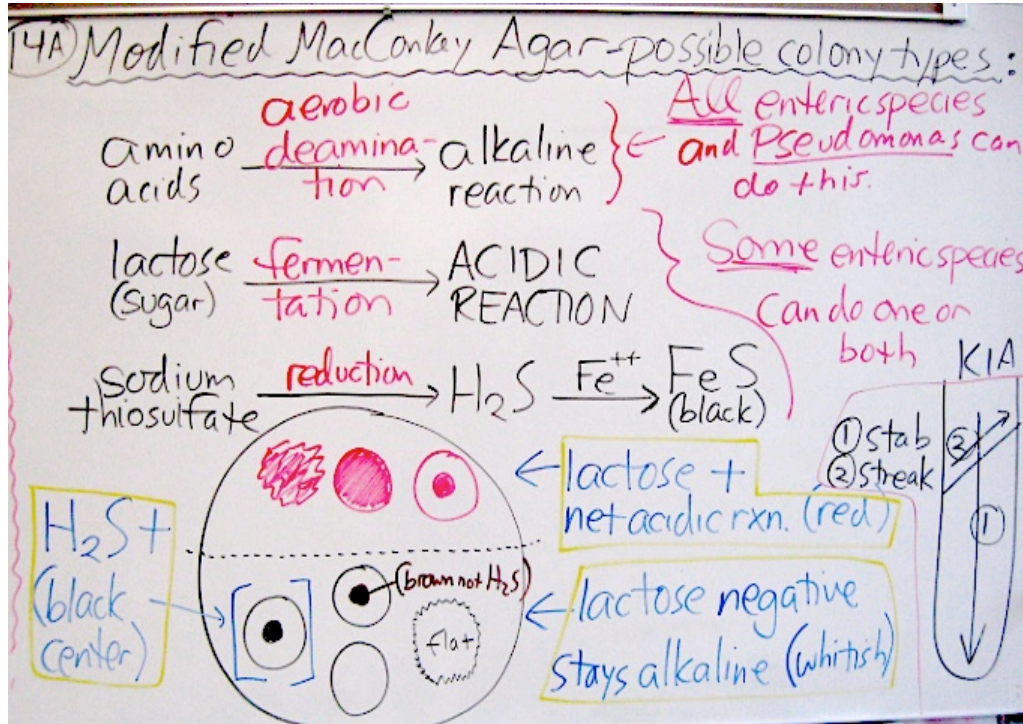 14A Modified MacConkey Agar-possible colony types:
amino
acids
aerobic
deamina-
tion
alkaline
reaction
All enteric species
and Pseudomonas can
do this.
lactose
(sugar)
fermen-
tation
ACIDIC
REACTION
Some enteric species
can do one or
both
sodium
thiosulfate
reduction
H₂S
Fe⁺⁺
FeS
(black)
KIA
① stab
② streak
②
①
lactose +
net acidic rxn. (red)
H₂S+
(black
center)
(brown not H₂S)
flat
lactose negative
stays alkaline (whitish)